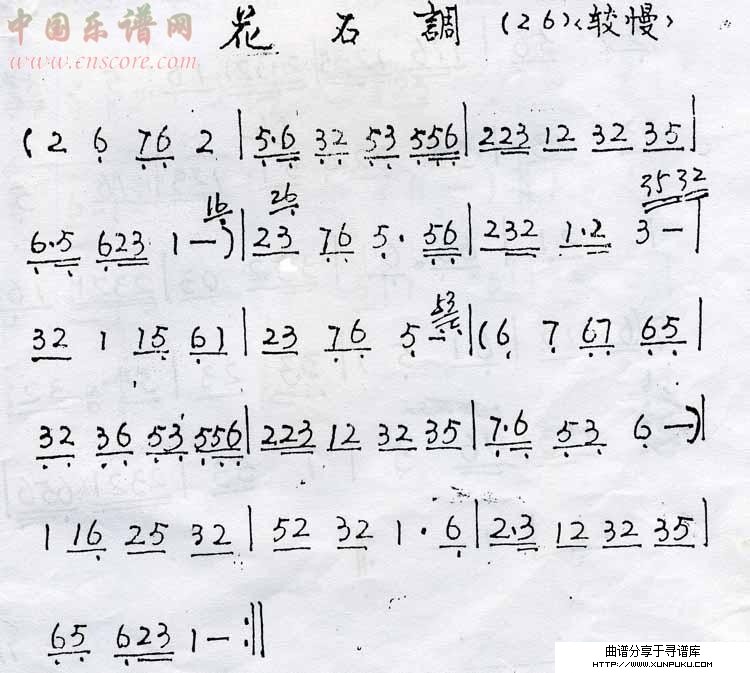 中国乐谱网
www.cnscore.com
花石調 (26)<较慢>
(2 6 76 2 | 5·6 32 53 556 | 223 12 32 35 |
16 26 35 32
6·5 623 1 —) | 23 76 5· 56 | 232 1·2 3 — |
53
32 1 15 61 | 23 76 5 — | (6 7 67 65 |
32 36 53 556 | 223 12 32 35 | 7·6 53 6 —) |
1 16 25 32 | 52 32 1· 6 | 2·3 12 32 35 |
65 623 1 — :||
曲谱分享于寻谱库
HTTP://WWW.XUNPUKU.COM